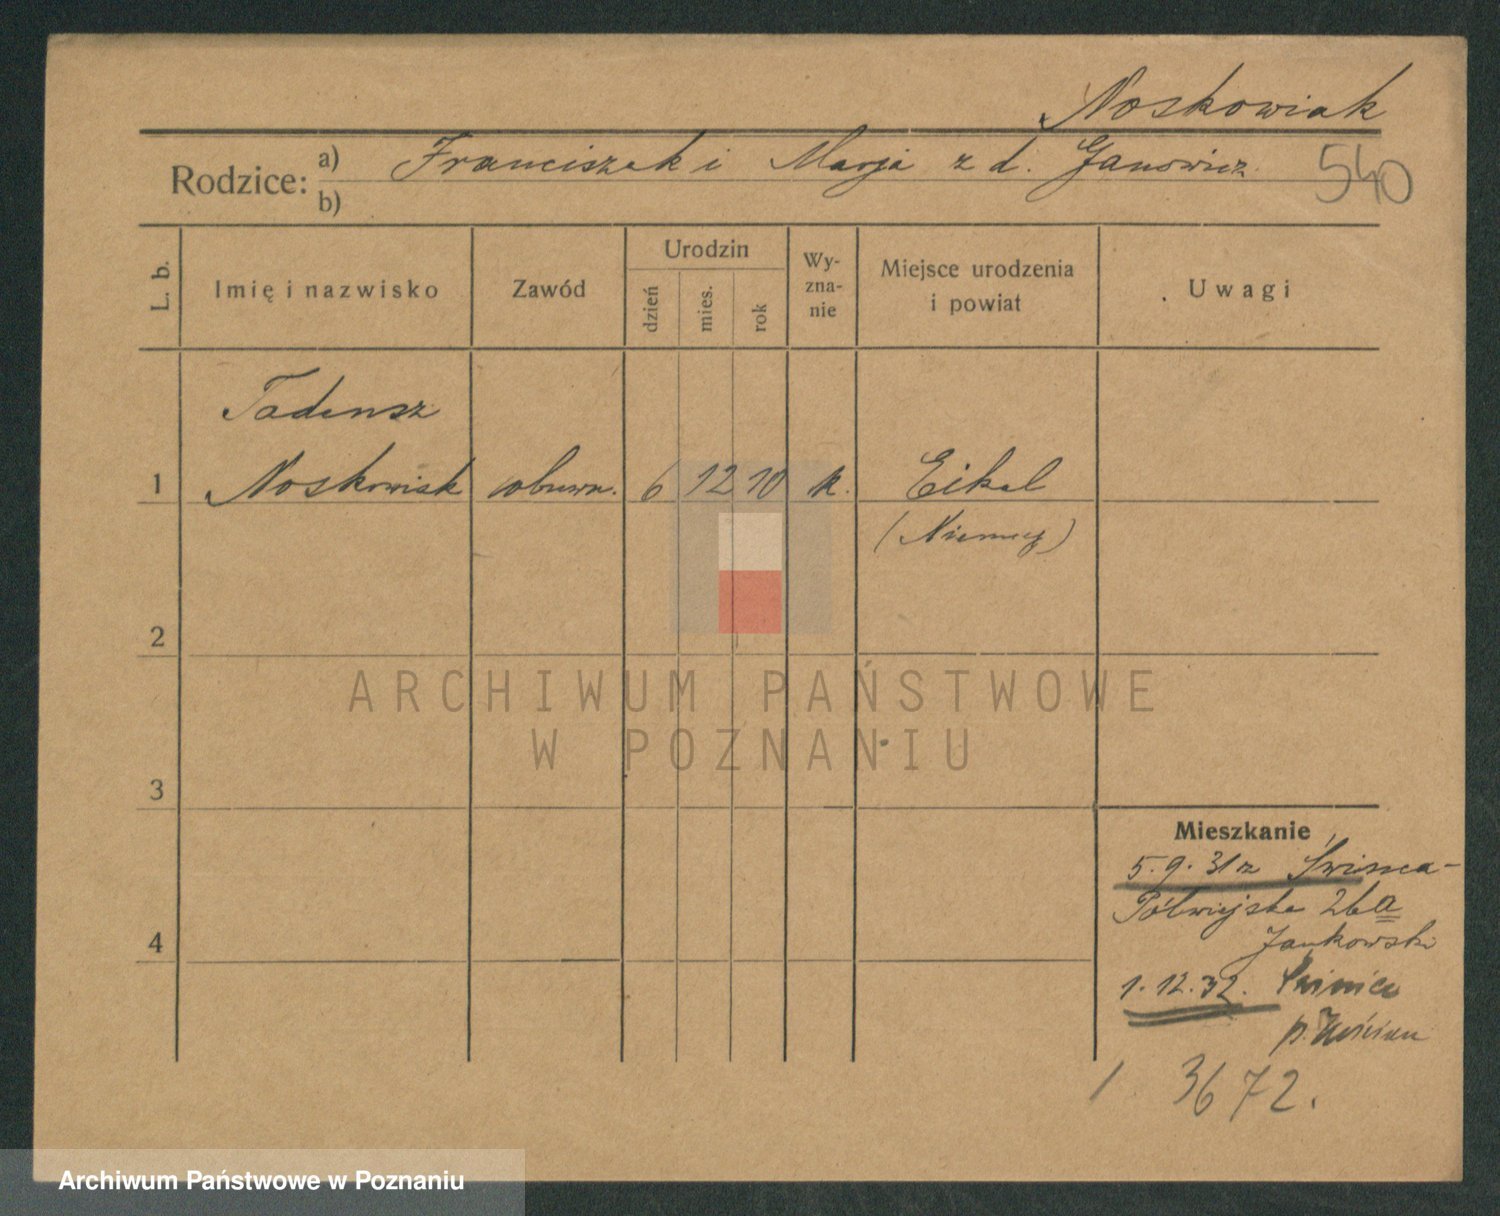 Noskowiak
Rodzice: a) Franciszek i Marja z d. Janowicz
b)
540
L. b.
Imię i nazwisko
Zawód
Urodzin
dzień
mies.
rok
Wy-
zna-
nie
Miejsce urodzenia
i powiat
Uwagi
Tadeusz
1 Noskowiak obuwn. 6 12 10 k. Eikel
(Niemcy)
2
ARCHIWUM PAŃSTWOWE
W POZNANIU
3
Mieszkanie
5.9.31 z
Półwiejska 26a
4
Jankowski
1.12.32.
p. Kościan
3672.
Archiwum Państwowe w Poznaniu